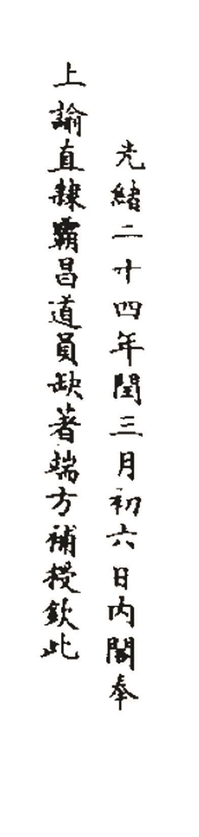 光緒二十四年閏三月初六日內閣奉
上諭直隸霸昌道員缺著端方補授欽此